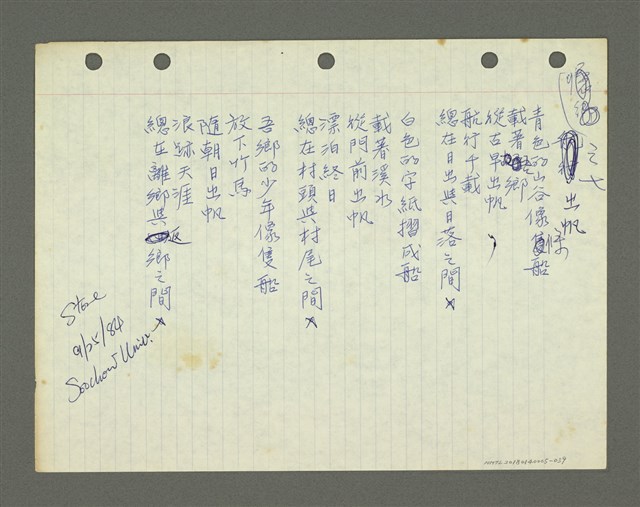 （鄉
之七
出帆
青色的山谷像隻船
載著鄉
從古早出帆，
航行千載
總在日出與日落之間
白色的字紙摺成船
載著溪水
從門前出帆
漂泊終日
總在村頭與村尾之間
吾鄉的少年像隻船
放下竹馬
隨朝日出帆
浪跡天涯
總在離鄉與返鄉之間
9/25/84
Soochow Univ.
NMTL20180140005-039